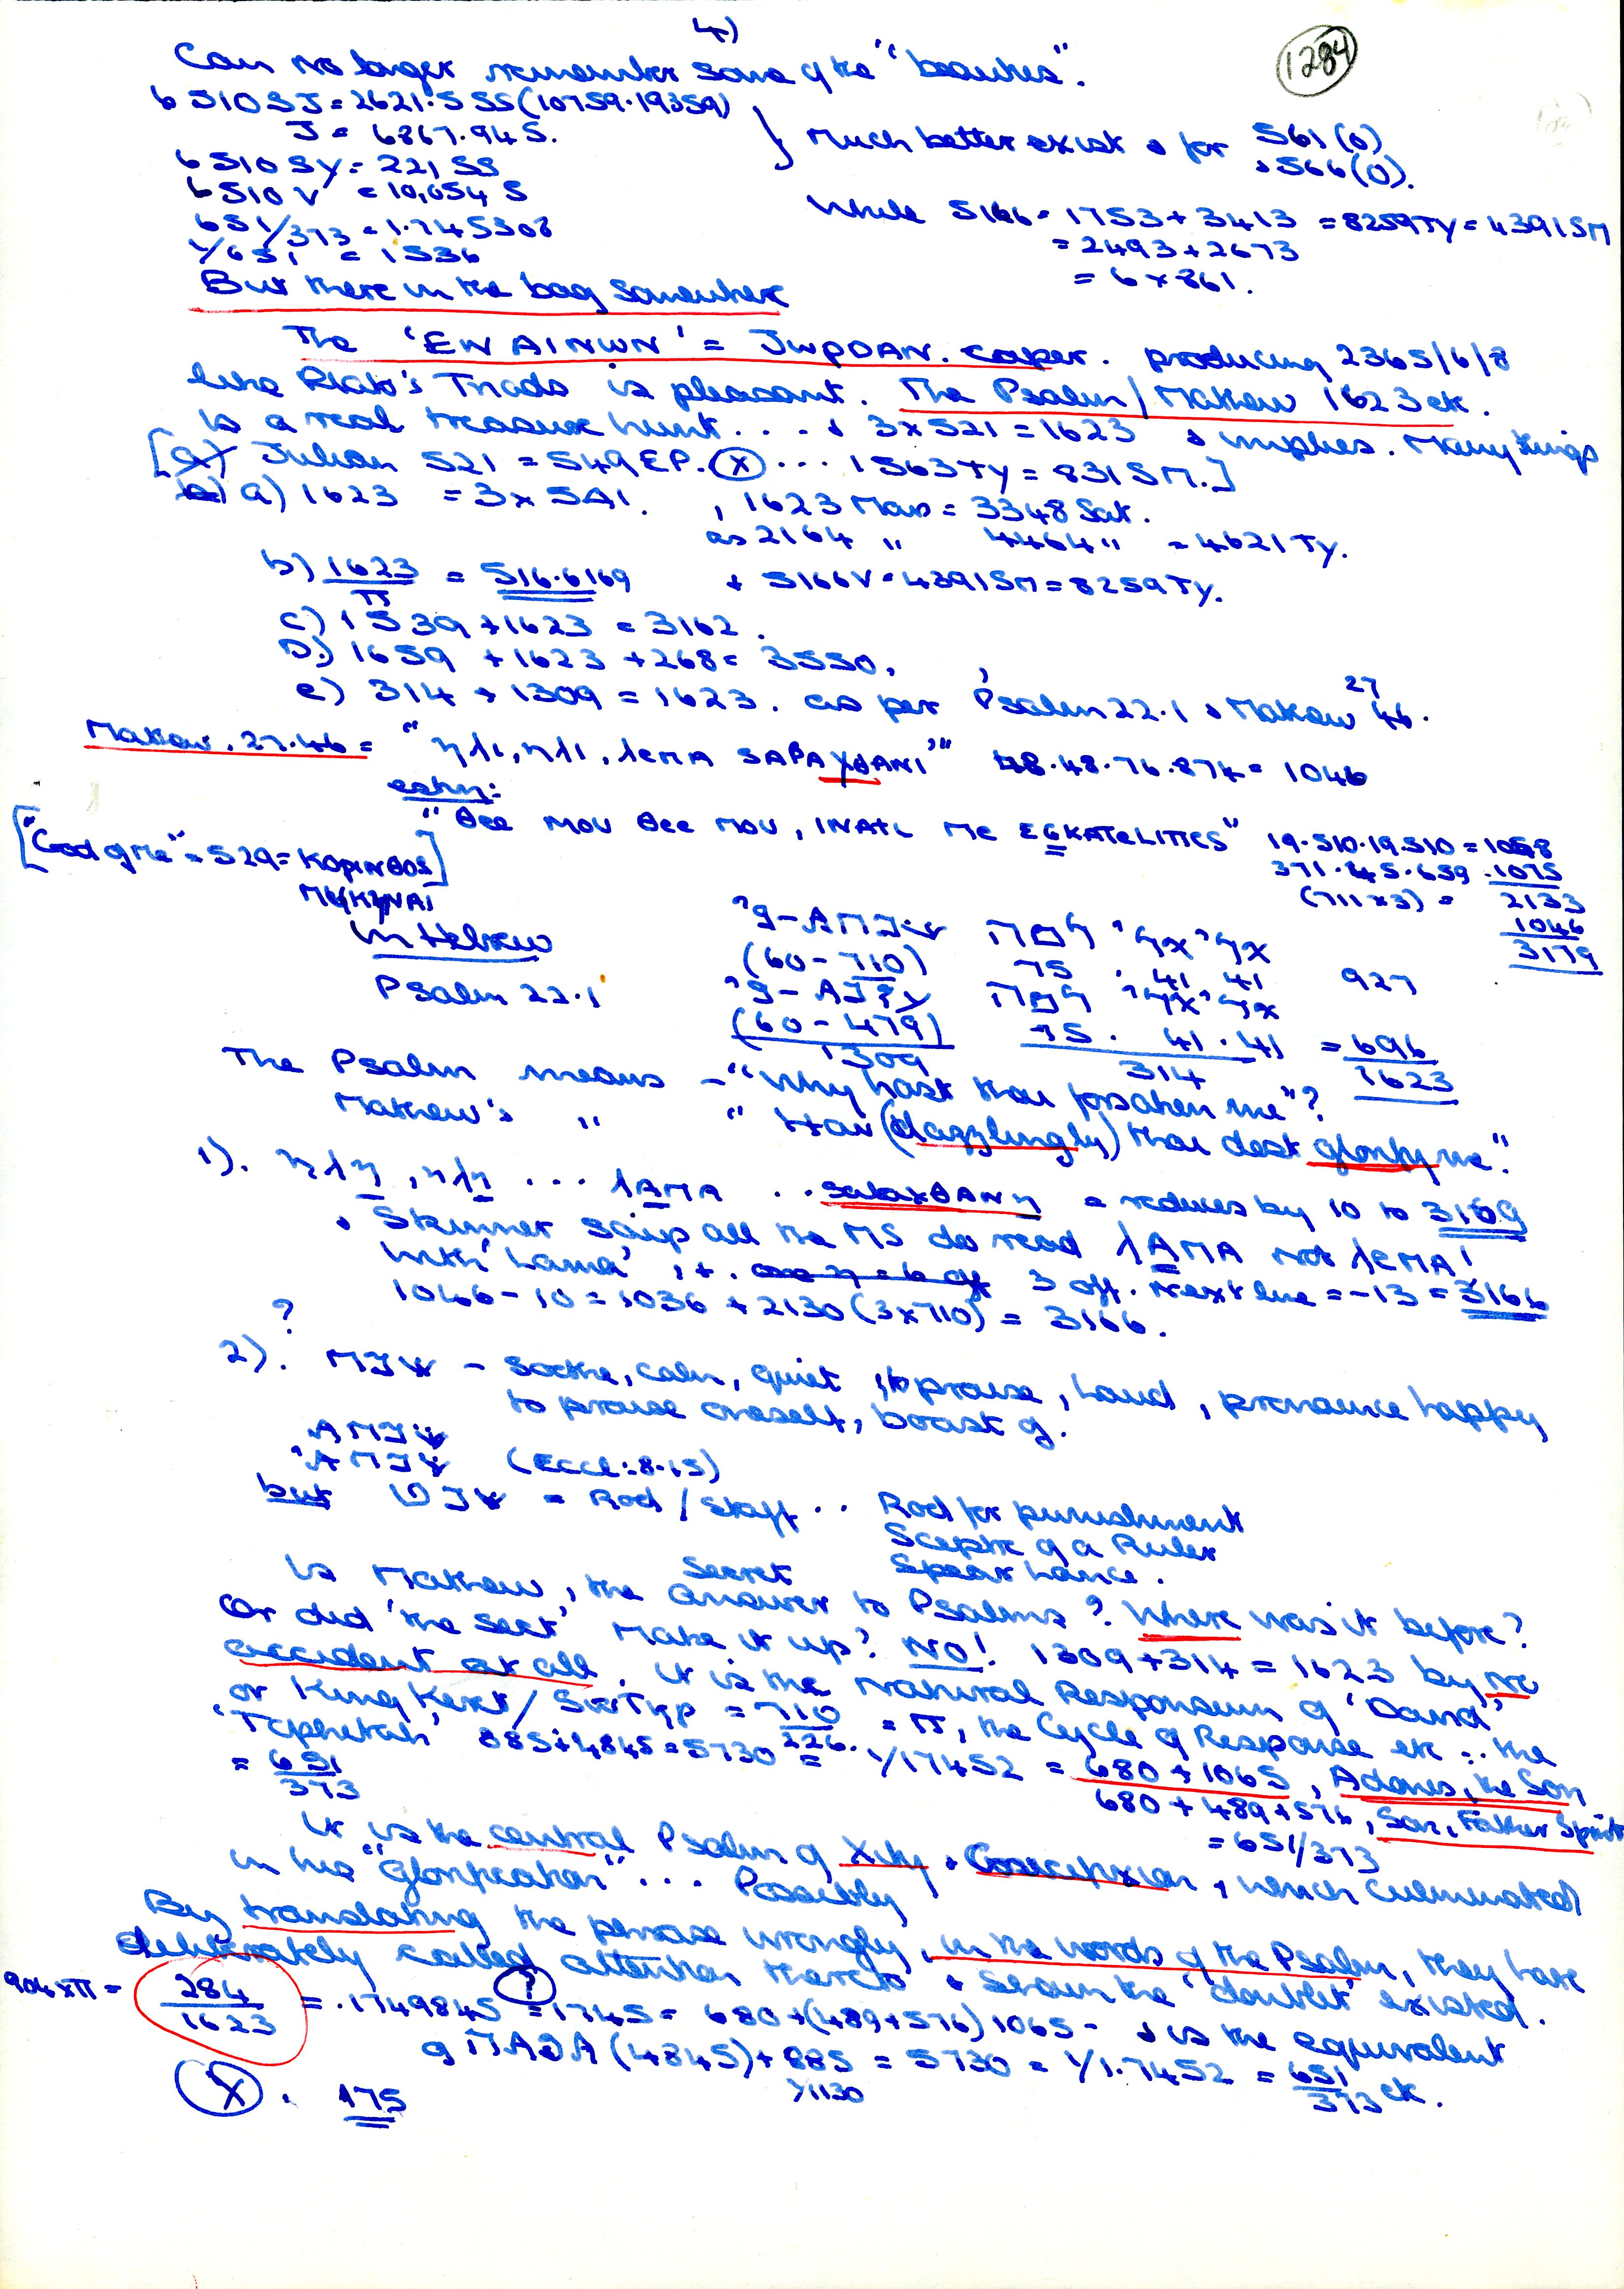 4)
1284
Can no longer remember some of the "beauties".
6510 SJ = 2621.5 SS (10759.19359)
J = 6867.94 S.
6510 SY = 221 SS
6510 V = 10,054 S
651/373 = 1.745308
1/651 = 1536
Much better exist & for 561 (0)
& 566 (0).
While 5166 = 1753 + 3413 = 8259 Ty = 4391 SM
= 2493 + 2673
= 6 x 861.
But there in the bag somewhere
The 'EN AINWN' = JWPDAN. caper. producing 2365/6/8
like Plato's Triads is pleasant. The Psalm/Mathew 1623 etc.
is a real treasure hunt.... & 3 x 521 = 1623 & implies. Many things
[a) Julian 521 = 549 EP. (X) ... 1563 Ty = 831 SM.]
a) 1623 = 3 x 541. , 1623 Mars = 3348 Sat.
as 2164 " 4464 " = 4621 Ty.
b) 1623/π = 516.6169 + 5166 V = 4391 SM = 8259 Ty.
c) 1539 + 1623 = 3162.
D.) 1659 + 1623 + 268 = 3550.
e) 314 + 1309 = 1623. as per Psalm 22.1 & Mathew 27 46.
Mathew. 27.46 = "ηλι, ηλι, λεMA SABAχθANI" 48.48.76.874 = 1046
estin:
"θεε MOU θεε MOU, INATI ME EGKATELITTES" 19.510.19.510 = 1058
["God of Me" = 529 = KOPINθOS]
MYKηNAI
371.45.659 .1075
(711 x 3) = 2133
1046
3179
in Hebrew
(60-710) 75 . 41 41 927
Psalm 22.1
(60-479) 75 . 41 . 41 = 696
1309 314 1623
The Psalm means - "Why hast thou forsaken me"?
Mathew's " " How (dazzlingly) thou dost glorify me."
1). ηλη, ηλη ... λAMA .. SabaxθANη = reduces by 10 to 3169
& Skinner says all the MS do read λAMA not λεMA!
With 'Lama', +. 3 off. Next line = -13 = 3166
1046 - 10 = 1036 + 2130 (3 x 710) = 3166.
?
2). - soothe, calm, quiet, to praise, laud, pronounce happy
to praise oneself, boast of.
(Eccl: 8.15)
but = Rod / staff .. Rod for punishment
Sceptre of a Ruler
Spear Lance.
Is Mathew, the Secret answer to Psalms? Where was it before?
Or did 'the sect' make it up? NO! 1309 + 314 = 1623 by no
accident at all. it is the Natural Responsum of 'David'
or King Kert / = 710/226 = π, the Cycle of Response etc ∴ the
'Tephetah' 885 + 4845 = 5730 = 1/17452 = 680 + 1065, Adones, the Son
= 651/373 680 + 489 + 576, Son, Father Spirit
= 651/373
It is the central Psalm of Xity & , which culminated
in his "Glorification"... Possibly
By translating the phrase wrongly, in the words of the Psalm, they have
deliberately called attention thereto & shown the 'doublet' existed.
904 x π = 284/1623 = .1749845 (?) = 1745 = 680 + (489 + 576) 1065 - & is the equivalent
of (4845) + 885 = 5730 = 1/1.7452 = 651/373 etc.
1/1130
(X). 175